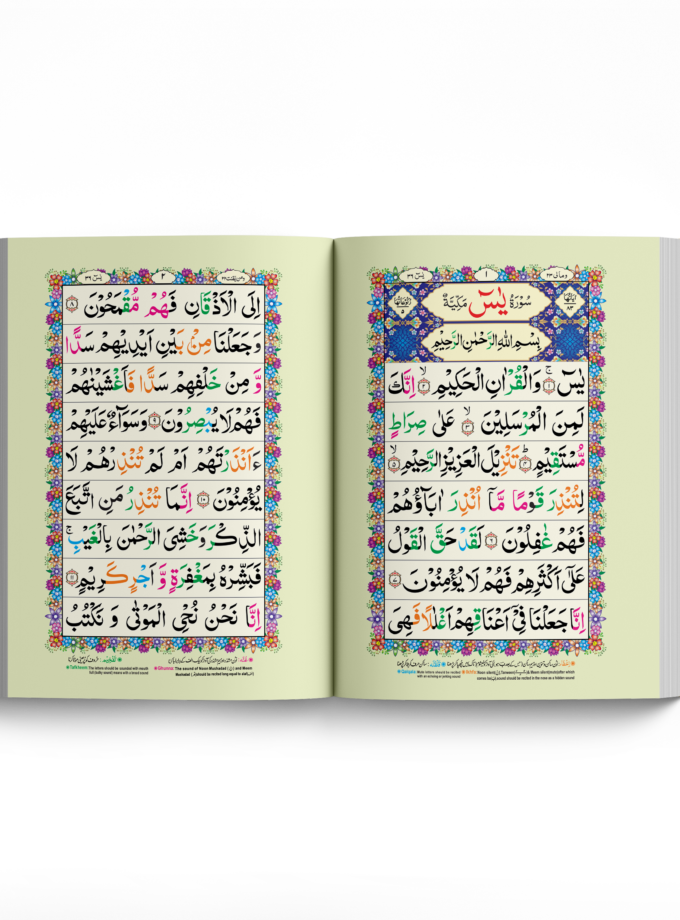 وما لی ۲۳
۱
یٰسٓ ۳۶
سُوْرَةُ يٰسٓ مَكِّيَّةٌ
بِسْمِ اللهِ الرَّحْمٰنِ الرَّحِيْمِ
يٰسٓ ۚ ﴿۱﴾ وَالْقُرْاٰنِ الْحَكِيْمِ ۙ ﴿۲﴾ اِنَّكَ
لَمِنَ الْمُرْسَلِيْنَ ۙ ﴿۳﴾ عَلٰى صِرَاطٍ
مُّسْتَقِيْمٍ ؕ ﴿۴﴾ تَنْزِيْلَ الْعَزِيْزِ الرَّحِيْمِ ۙ ﴿۵﴾
لِتُنْذِرَ قَوْمًا مَّاۤ اُنْذِرَ اٰبَآؤُهُمْ
فَهُمْ غٰفِلُوْنَ ﴿۶﴾ لَقَدْ حَقَّ الْقَوْلُ
عَلٰٓى اَكْثَرِهِمْ فَهُمْ لَا يُؤْمِنُوْنَ ﴿۷﴾
اِنَّا جَعَلْنَا فِىْۤ اَعْنَاقِهِمْ اَغْلٰلًا فَهِىَ
۲
یٰسٓ ۳۶
اِلَى الْاَذْقَانِ فَهُمْ مُّقْمَحُوْنَ ﴿۸﴾
وَجَعَلْنَا مِنْۢ بَيْنِ اَيْدِيْهِمْ سَدًّا
وَّ مِنْ خَلْفِهِمْ سَدًّا فَاَغْشَيْنٰهُمْ
فَهُمْ لَا يُبْصِرُوْنَ ﴿۹﴾ وَسَوَآءٌ عَلَيْهِمْ
ءَاَنْذَرْتَهُمْ اَمْ لَمْ تُنْذِرْهُمْ لَا
يُؤْمِنُوْنَ ﴿۱۰﴾ اِنَّمَا تُنْذِرُ مَنِ اتَّبَعَ
الذِّكْرَ وَخَشِىَ الرَّحْمٰنَ بِالْغَيْبِ ۚ
فَبَشِّرْهُ بِمَغْفِرَةٍ وَّ اَجْرٍ كَرِيْمٍ ﴿۱۱﴾
اِنَّا نَحْنُ نُحْىِ الْمَوْتٰى وَ نَكْتُبُ